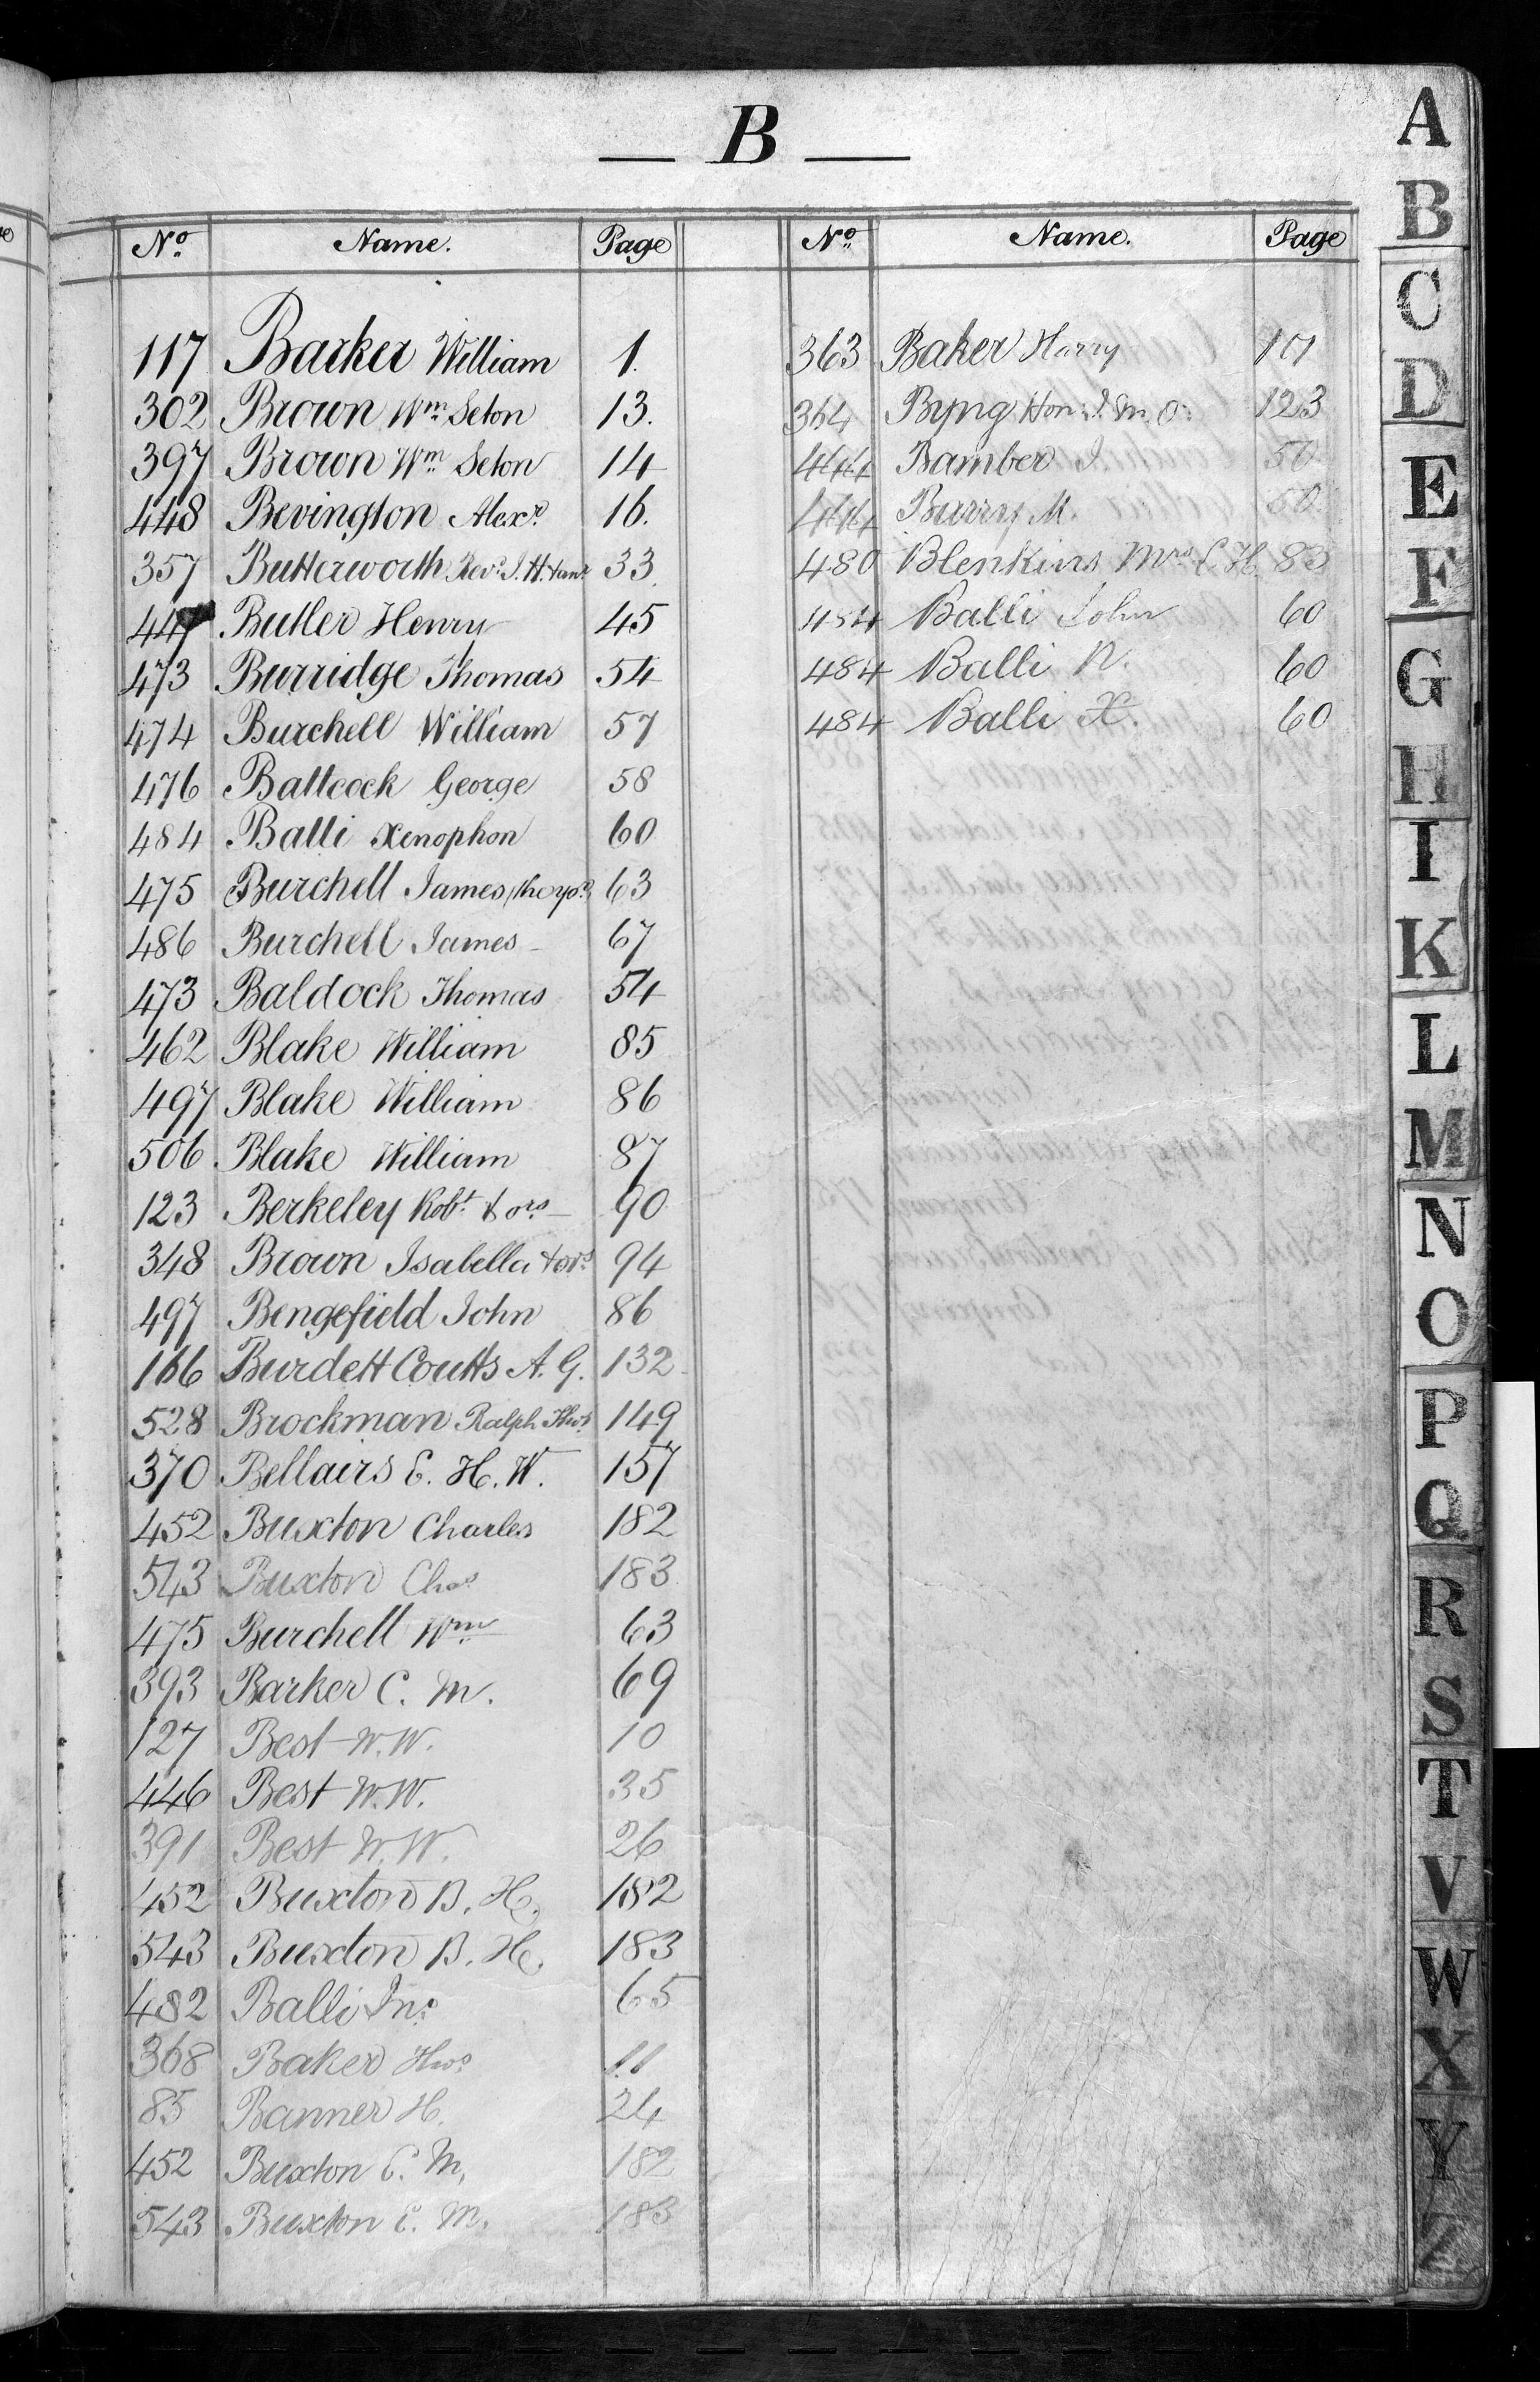 — B —
No. Name. Page
117 Barker William 1.
302 Brown Wm. Seton 13.
397 Brown Wm. Seton 14
448 Bevington Alexr. 16.
357 Butterworth Revd. J. H. 33
447 Butler Henry 45
473 Burridge Thomas 54
474 Burchell William 57
476 Battcock George 58
484 Balli Xenophon 60
475 Burchell James (the yor.) 63
486 Burchell James 67
473 Baldock Thomas 54
462 Blake William 85
497 Blake William 86
506 Blake William 87
123 Berkeley Robt. & ors. 90
348 Brown Isabella & ors. 94
497 Bengefield John 86
166 Burdett Coutts A. G. 132
528 Brockman Ralph Thos. 149
370 Bellairs E. H. W. 157
452 Buxton Charles 182
543 Buxton Chas. 183
475 Burchell Wm. 63
393 Barker C. M. 69
127 Best W. W. 10
446 Best W. W. 35
391 Best W. W. 26
452 Buxton B. H. 182
543 Buxton B. H. 183
482 Balli Jno. 65
368 Baker Thos. 11
85 Banner H. 24
452 Buxton E. M. 182
543 Buxton E. M. 183
No. Name. Page
363 Baker Harry 101
364 Byng Hon. J. M. O. 123
444 Bamber J. 50
444 Burry M. 50
480 Blenkins Mrs. E H. 83
484 Balli John 60
484 Balli N. 60
484 Balli X. 60
A
B
C
D
E
F
G
H
I
K
L
M
N
O
P
Q
R
S
T
V
W
X
Y
Z